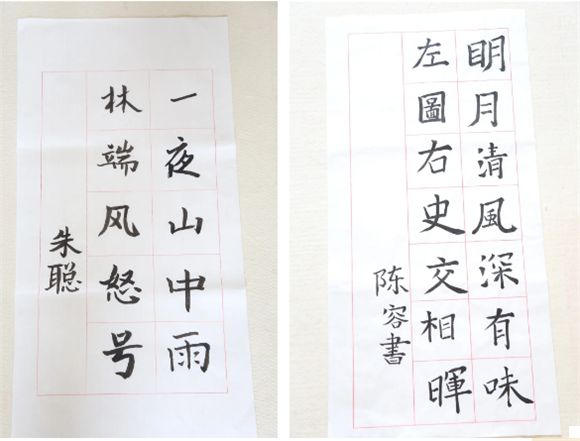 一夜山中雨
林端风怒号
朱聪
明月清風深有味
左圖右史交相暉
陈容書